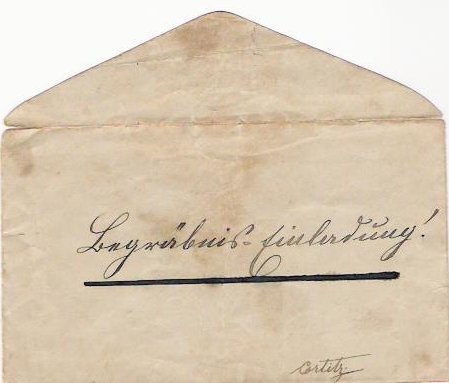 Begräbnis-Einladung!
Certitz